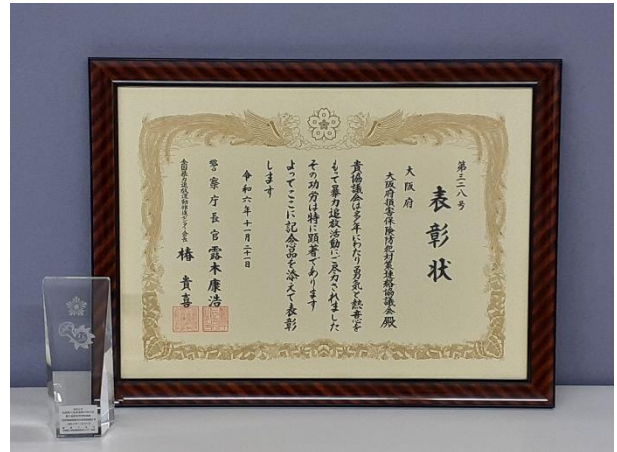 第三二八号
表彰状
大阪府
大阪府損害保険防犯対策連絡協議会殿
貴協議会は多年にわたり勇気と熱意を
もって暴力追放活動に尽力されました
その功労は特に顕著であります
よってここに記念品を添えて表彰
します
令和六年十一月二十一日
警察庁長官 露木康浩
全国暴力追放運動推進センター会長 椿貴喜